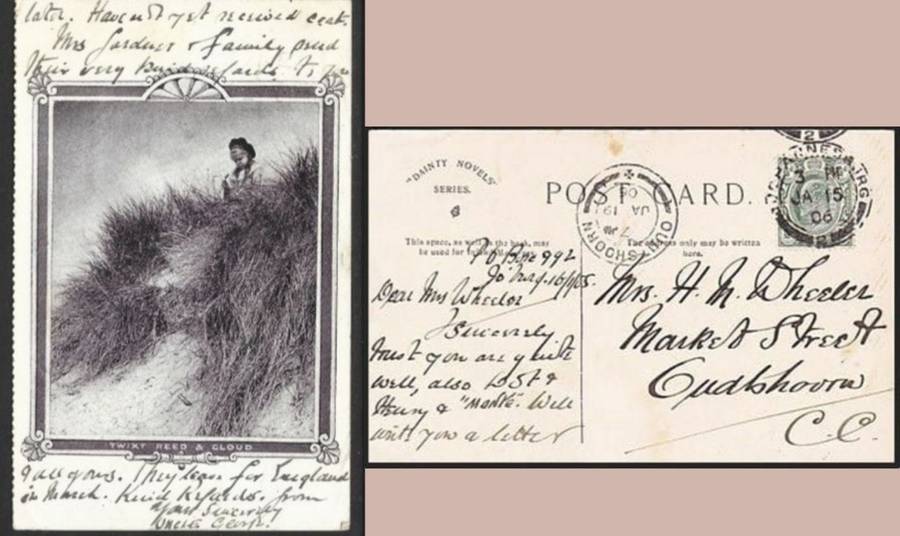 later. Haven't yet received cest.
Mrs Gardner & family send
their very kind regards to you
TWIXT REED & CLOUD
& all yours. They leave for England
in March. Kind Regards. from
Yours Sincerely
Uncle George.
"DAINTY NOVELS"
SERIES.
POST CARD.
This space, as well as the back, may
be used for
The address only may be written
here.
JOHANNESBURG
3 PM
JA 15
06
2
OUDTSHOORN
JA 19
06
PO Box 992
Jo'burg.
Dear Mrs Wheeler
I Sincerely
trust you are quite
well, also
Henry & "Monte". Will
write you a letter
Mrs. H. N. Wheeler
Market Street
Oudtshoorn
C.C.